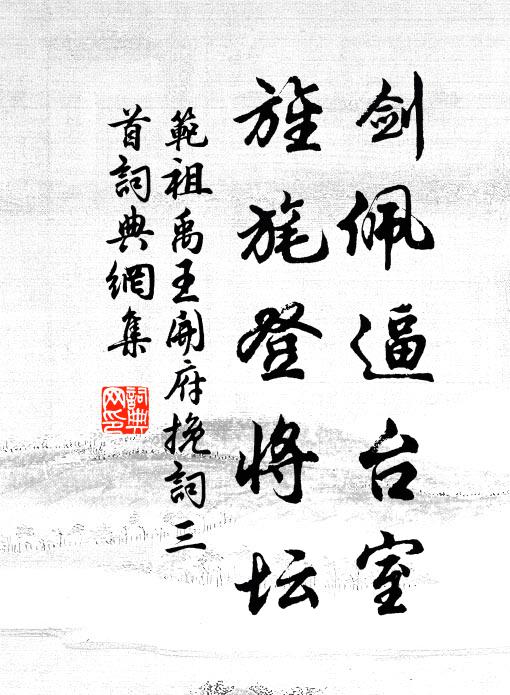 剑佩逼台室
旌旄登将坛
範祖禹王開府挽詞三
首詞典網集
詞典
网印